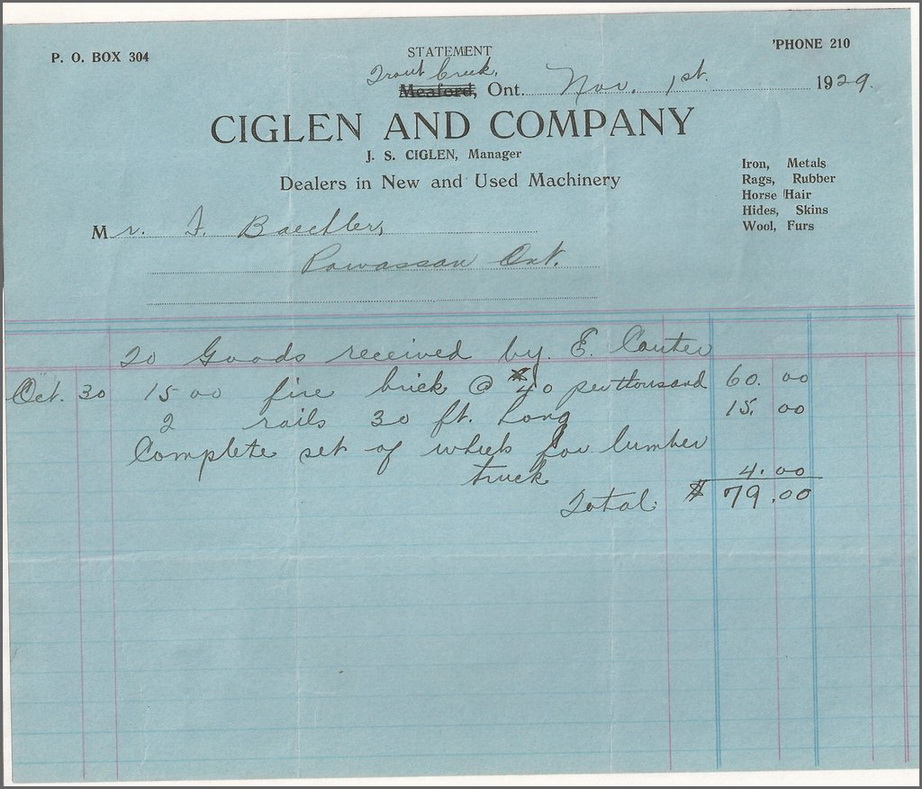 P. O. BOX 304
STATEMENT
'PHONE 210
Trout Creek,
Meaford, Ont. Nov. 1st. 1929.
CIGLEN AND COMPANY
J. S. CIGLEN, Manager
Dealers in New and Used Machinery
Iron, Metals
Rags, Rubber
Horse Hair
Hides, Skins
Wool, Furs
Mr. F. Baechler,
Powassan Ont.
To Goods received by E. Couter
Oct. 30 1500 fire brick @ $40 per thousand 60.00
2 rails 30 ft. Long 15.00
Complete set of wheels for lumber
truck 4.00
Total $79.00